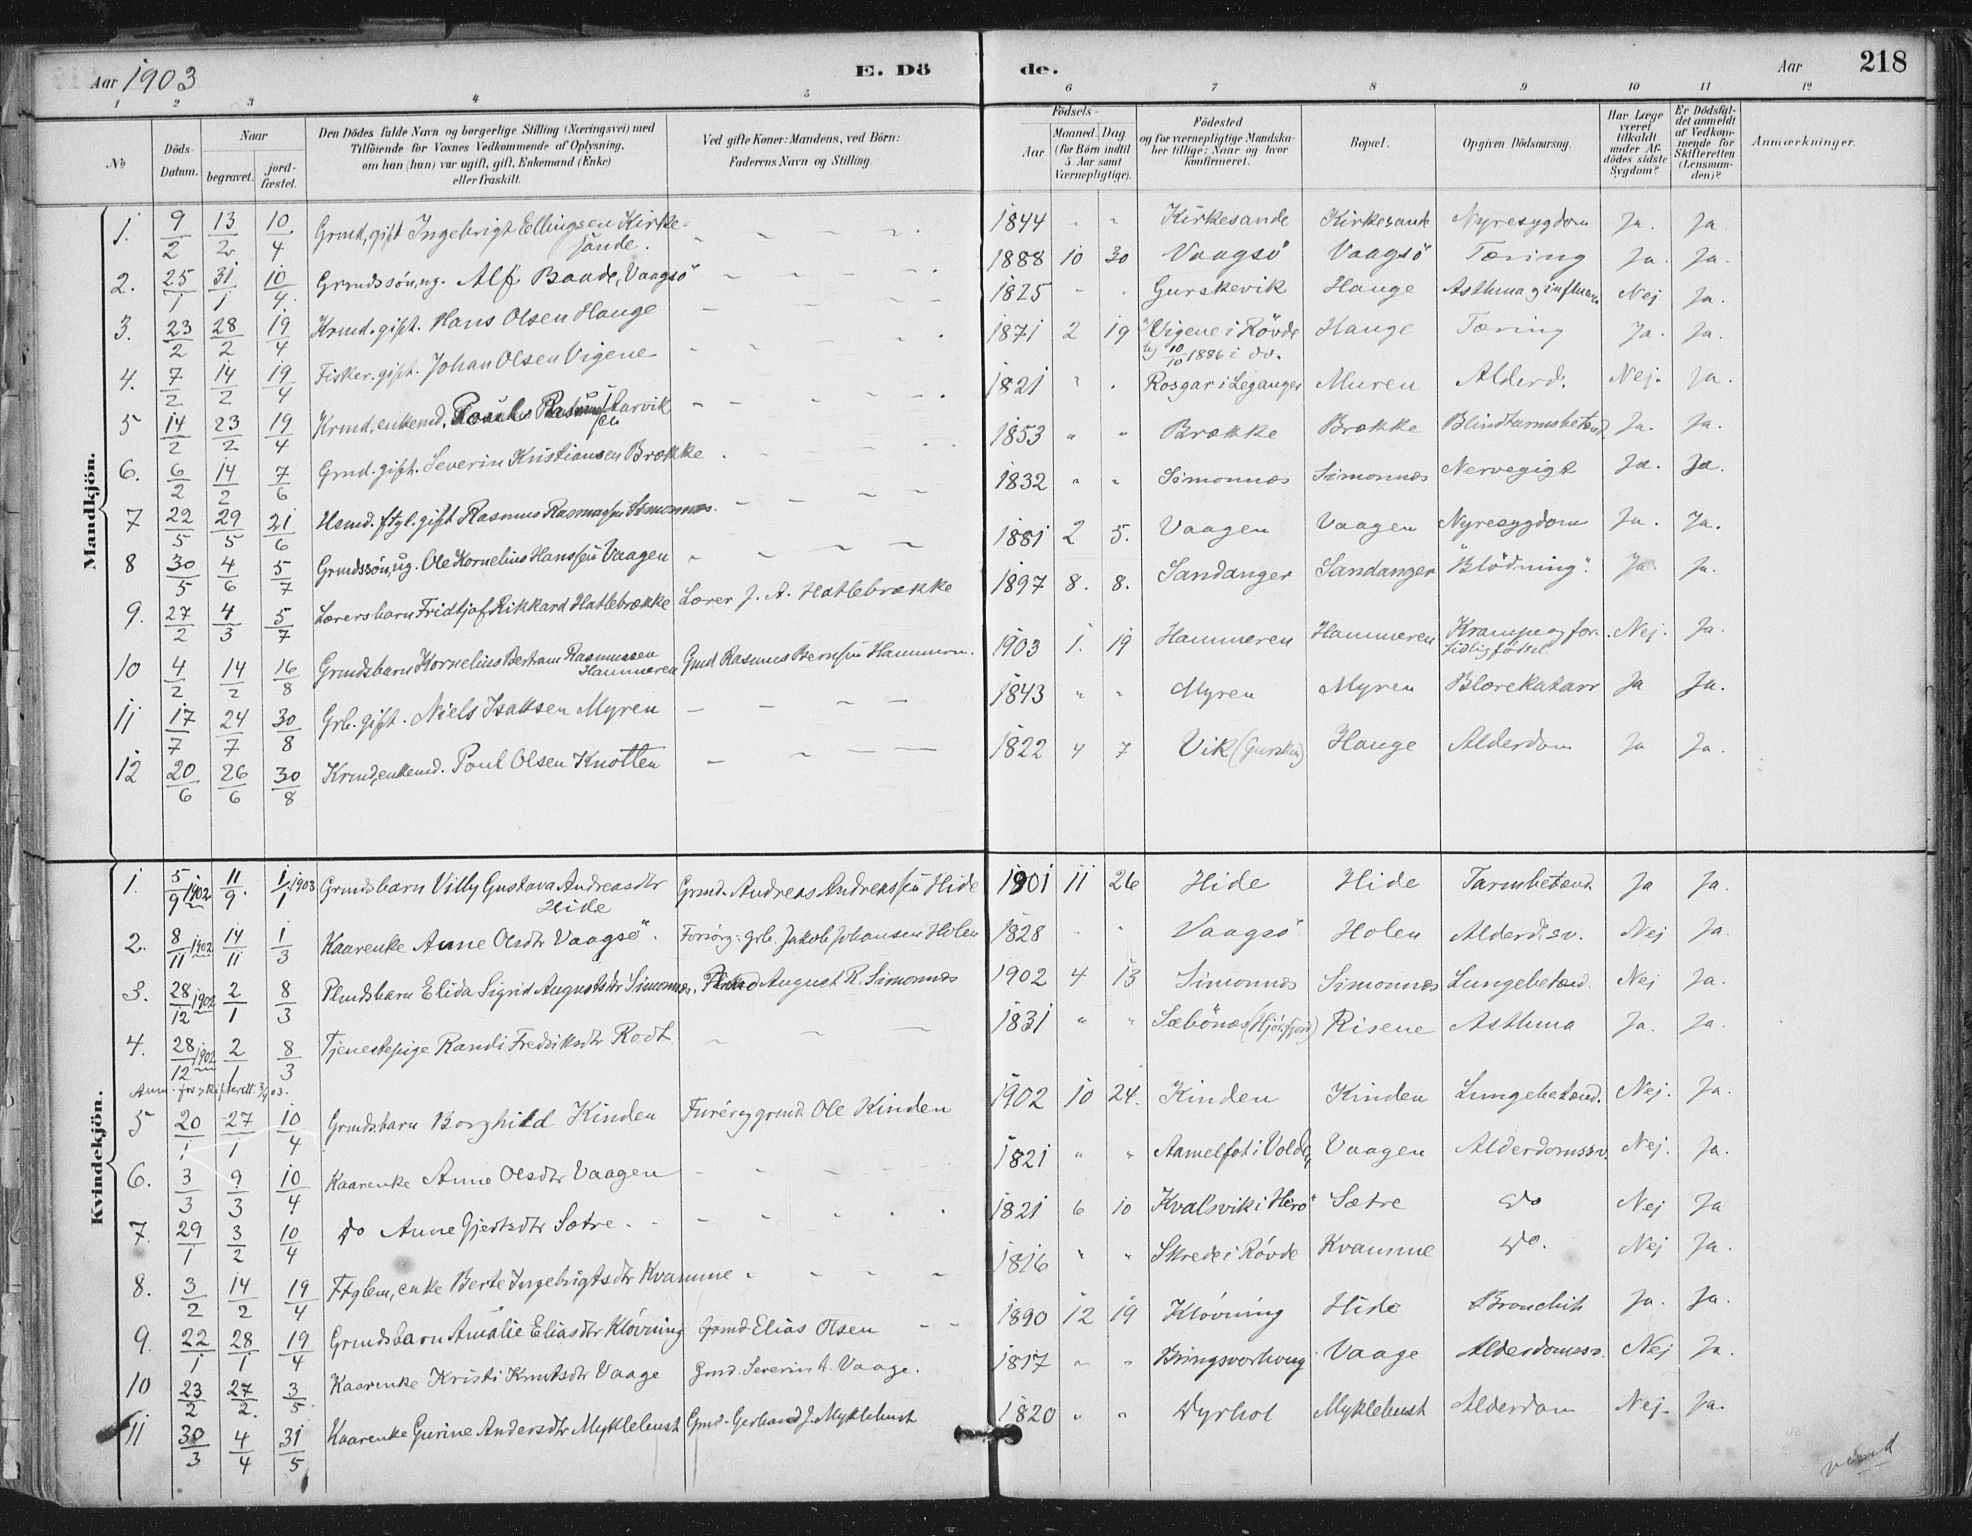 Aar 1903 E. Dö de. Aar 218
1 2 3 4 5 6 7 8 9 10 11 12
No
Döds-Datum.
Naar
begravet.
jord-fæstet.
Den Dödes fulde Navn og borgerlige Stilling (Næringsvei) med
Tilföiende for Voxnes Vedkommende af Oplysning,
om han (hun) var ugift, gift, Enkemand (Enke)
eller fraskilt.
Ved gifte Koner: Mandens, ved Börn:
Faderens Navn og Stilling.
Födsels-
Aar
Maaned. Dag
(for Börn indtil
5 Aar samt
Værnepligtige).
Födested
og for værnepligtige Mandska-
ber tillige: Naar og hvor
konfirmeret.
Bopæl.
Opgiven Dödsaarsag.
Har Læge
været
tilkaldt
under Af-
dödes sidste
Sygdom?
Er Dödsfal-
det anmeldt
af Vedkom-
mende for
Skifteretten
(Lensman-
den)?
Anmærkninger.
Mandkjön.
1. 9/2 13/2 10/4 Grmd, gift Ingebrigt Ellingsen Kirke-
sande. 1844 " " Kirkesande Kirkesande Nyresygdom Ja. Ja.
2. 25/1 31/1 10/4. Grmdssön, ug. Alf Baade, Vaagsö 1888 10 30 Vaagsö Vaagsö Tæring Ja. Ja.
3. 23/2 28/2 19/4 Krmd. gift. Hans Olsen Hauge 1825 " " Gurskevik Hauge Asthma og influenza Nej Ja.
4. 7/2 14/2 19/4 Fisker. gift. Johan Olsen Vigene 1871 2 19 Vigene i Rövde Hauge Tæring Ja. Ja.
10/10 1886 i do.
5 14/2 23/2 19/4 Krmd. enkemd. Larvik 1821 " " Rosgar i Leganger Muren Alderd. Nej. Ja.
6. 6/2 14/2 7/6 Grmd. gift. Severin Kristiansen Brække 1853 " " Brække Brække Blindtarmsbetænd. Ja. Ja.
7 22/5 29/5 21/6 Hsmd. ftgl. gift Rasmus Rasmussen Simonnæs. 1832 " " Simonnæs Simonnæs Nervegigt Ja. Ja.
8 30/5 4/6 5/7 Grmdssön, ug. Ole Kornelius Hanssen Vaagen 1881 2 5. Vaagen Vaagen Nyresygdom Ja. Ja.
9. 27/2 4/3 5/7 Lærersbarn Fridtjof Rikkard Hatlebrække Lærer J. A. Hatlebrække 1897 8. 8. Sandanger Sandanger "Blödning". Ja. Ja.
10 4/2 14/2 16/8 Grmdsbarn Kornelius Bertram Rasmussen
Hammeren Gmd Rasmus Berntsen Hammern. 1903 1. 19 Hammeren Hammeren Krampe og for-
tidlig födsel Nej. Ja.
11 17/7 24/7 30/8 Grb. gift. Niels Isaksen Myren 1843 " " Myren Myren Blærekatarr Ja Ja.
12 20/6 26/6 30/8 Krmd, enkemd. Poul Olsen Knotten 1822 4 7 Vik (Gursken) Hauge Alderdom Ja Ja.
Kvindekjön.
1. 5/9 1902 11/9. 1/1 1903 Grmdsbarn Villy Gustava Andreasdtr
Hide Grmd. Andreas Andreassen Hide 1901 11 26 Hide Hide Tarmbetænd. Ja Ja.
2. 8/11 1902 14/11 1/3 Kaarenke Anne Olsdtr Vaagsö. Forsörg: grb. Jakob Johansen Holen 1828 " " Vaagsö Holen Alderd.sv. Nej Ja.
3. 28/12 1902 2/1 8/3 Plmdsbarn Elida Sigrid Augustsdtr Simonnæs. Plmd August R. Simonnæs 1902 4 13 Simonnæs Simonnæs Lungebetænd. Nej Ja.
4. 28/12 1902 2/1 8/3 Tjenestepige Randi Fredriksdtr Rodt. 1831 " " Sæbönæs (Hjörifjord) Risene Asthma Ja. Ja.
Anm. for skifterett. 3/1 03.
5 20/1 27/1 10/4 Grmdsbarn Borghild Kinden Furér og grmd. Ole Kinden 1902 10 24. Kinden Kinden Lungebetænd. Nej. Ja.
6. 3/3 9/3 10/4 Kaarenke Anne Olsdtr Vaagen 1821 " " Aamelfot i Volden Vaagen Alderdomssv. Nej. Ja.
7. 29/1 3/2 10/4 do Anne Gjertsdtr Sætre. 1821 6 10 Kvalsvik i Herö Sætre do Nej Ja
8. 3/2 14/2 19/4 Ftglem, enke Berte Ingebrigtsdtr Kvamme 1816 " " Skrede i Rövde Kvamme do. Nej Ja.
9. 22/1 28/1 19/4 Grmdsbarn Amalie Eliasdtr Klövning Grmd Elias Olsen 1890 12 19 Klövning Hide Bronchit Ja. Ja.
10 23/2 27/2. 3/5. Kaarenke Kristi Knutsdtr Vaage Gmd. Severin A. Vaage. 1817 " " Bringsvorhoug Vaage Alderdomssv. Nej Ja.
11 30/3 4/4 31/5 Kaarenke Gurine Andersdtr Myklebust Gmd. Gerhard J. Myklebust 1820 " " Dyrhol Myklebust Alderdom Nej. Ja.
vend